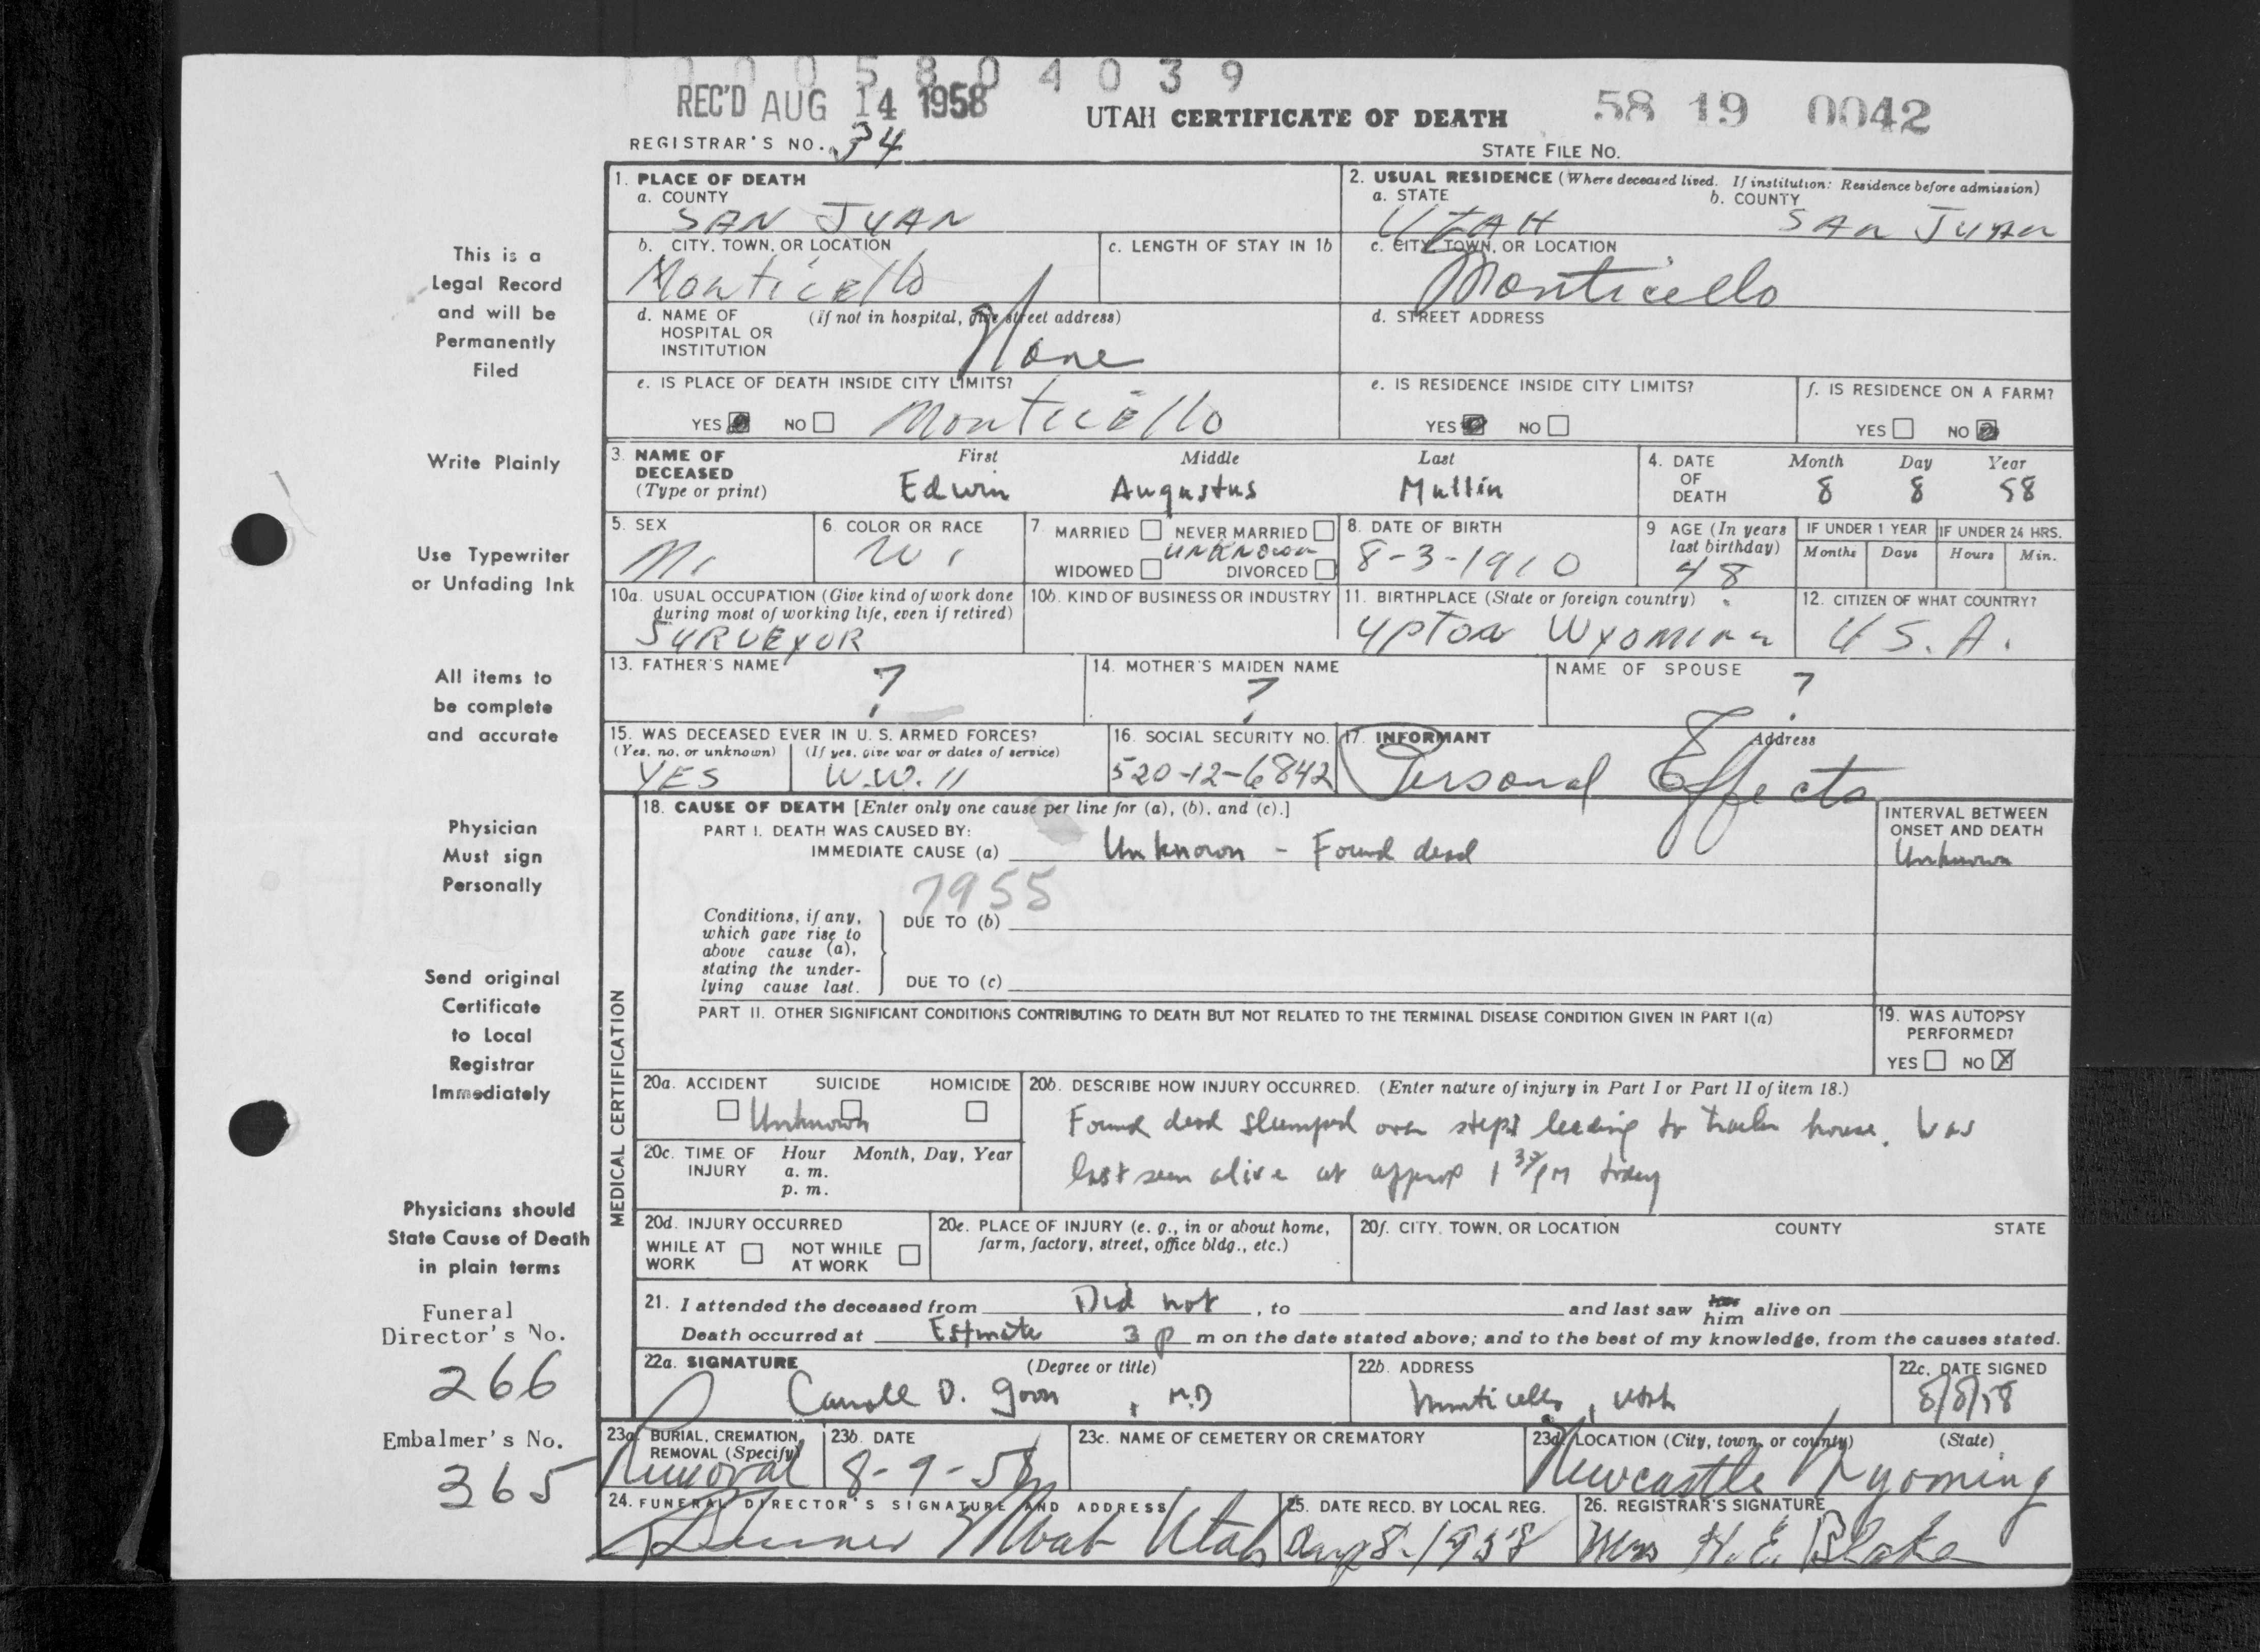 0 0 0 5 8 0 4 0 3 9
REC'D AUG 14 1958
UTAH CERTIFICATE OF DEATH
58 19 0042
REGISTRAR'S NO. 34
STATE FILE NO.
This is a
Legal Record
and will be
Permanently
Filed
Write Plainly
Use Typewriter
or Unfading Ink
All items to
be complete
and accurate
Physician
Must sign
Personally
Send original
Certificate
to Local
Registrar
Immediately
Physicians should
State Cause of Death
in plain terms
Funeral
Director's No.
266
Embalmer's No.
365
1. PLACE OF DEATH
a. COUNTY
SAN JUAN
2. USUAL RESIDENCE (Where deceased lived. If institution: Residence before admission)
a. STATE
UTAH
b. COUNTY
SAN JUAN
b. CITY, TOWN, OR LOCATION
Monticello
c. LENGTH OF STAY IN 1b
c. CITY, TOWN, OR LOCATION
Monticello
d. NAME OF (If not in hospital, give street address)
HOSPITAL OR
INSTITUTION
None
d. STREET ADDRESS
e. IS PLACE OF DEATH INSIDE CITY LIMITS?
YES NO Monticello
e. IS RESIDENCE INSIDE CITY LIMITS?
YES NO
f. IS RESIDENCE ON A FARM?
YES NO
3. NAME OF
DECEASED
(Type or print)
First Middle Last
Edwin Augustus Mullin
4. DATE
OF
DEATH
Month Day Year
8 8 58
5. SEX
M.
6. COLOR OR RACE
W.
7. MARRIED NEVER MARRIED
UNKNOWN
WIDOWED DIVORCED
8. DATE OF BIRTH
8-3-1910
9 AGE (In years
last birthday)
48
IF UNDER 1 YEAR
Months Days
IF UNDER 24 HRS.
Hours Min.
10a. USUAL OCCUPATION (Give kind of work done
during most of working life, even if retired)
SURVEYOR
10b. KIND OF BUSINESS OR INDUSTRY
11. BIRTHPLACE (State or foreign country)
Upton Wyoming
12. CITIZEN OF WHAT COUNTRY?
U S. A.
13. FATHER'S NAME
?
14. MOTHER'S MAIDEN NAME
?
NAME OF SPOUSE
?
15. WAS DECEASED EVER IN U. S. ARMED FORCES?
(Yes, no, or unknown) (If yes, give war or dates of service)
YES W.W. II
16. SOCIAL SECURITY NO.
520-12-6842
17. INFORMANT Address
Personal Effects
MEDICAL CERTIFICATION
18. CAUSE OF DEATH [Enter only one cause per line for (a), (b), and (c).]
PART I. DEATH WAS CAUSED BY:
IMMEDIATE CAUSE (a) Unknown - Found dead
7955
INTERVAL BETWEEN
ONSET AND DEATH
Unknown
Conditions, if any,
which gave rise to
above cause (a),
stating the under-
lying cause last.
DUE TO (b)
DUE TO (c)
PART II. OTHER SIGNIFICANT CONDITIONS CONTRIBUTING TO DEATH BUT NOT RELATED TO THE TERMINAL DISEASE CONDITION GIVEN IN PART I(a)
19. WAS AUTOPSY
PERFORMED?
YES NO X
20a. ACCIDENT SUICIDE HOMICIDE
Unknown
20b. DESCRIBE HOW INJURY OCCURRED. (Enter nature of injury in Part I or Part II of item 18.)
Found dead slumped over steps leading to trailer house. Was
last seen alive at approx 1 30 PM today
20c. TIME OF INJURY
Hour Month, Day, Year
a. m.
p. m.
20d. INJURY OCCURRED
WHILE AT WORK
NOT WHILE AT WORK
20e. PLACE OF INJURY (e. g., in or about home,
farm, factory, street, office bldg., etc.)
20f. CITY, TOWN, OR LOCATION COUNTY STATE
21. I attended the deceased from Did not, to and last saw her him alive on
Death occurred at Estimate 3 p m on the date stated above; and to the best of my knowledge, from the causes stated.
22a. SIGNATURE (Degree or title)
Carroll D. Goon, M.D
22b. ADDRESS
Monticello, Utah
22c. DATE SIGNED
8/8/58
23a. BURIAL, CREMATION,
REMOVAL (Specify)
Removal
23b. DATE
8-9-58
23c. NAME OF CEMETERY OR CREMATORY
23d. LOCATION (City, town, or county) (State)
Newcastle Wyoming
24. FUNERAL DIRECTOR'S SIGNATURE AND ADDRESS
Moab Utah
25. DATE RECD. BY LOCAL REG.
Aug 8-1958
26. REGISTRAR'S SIGNATURE
Mrs H. E. Blake